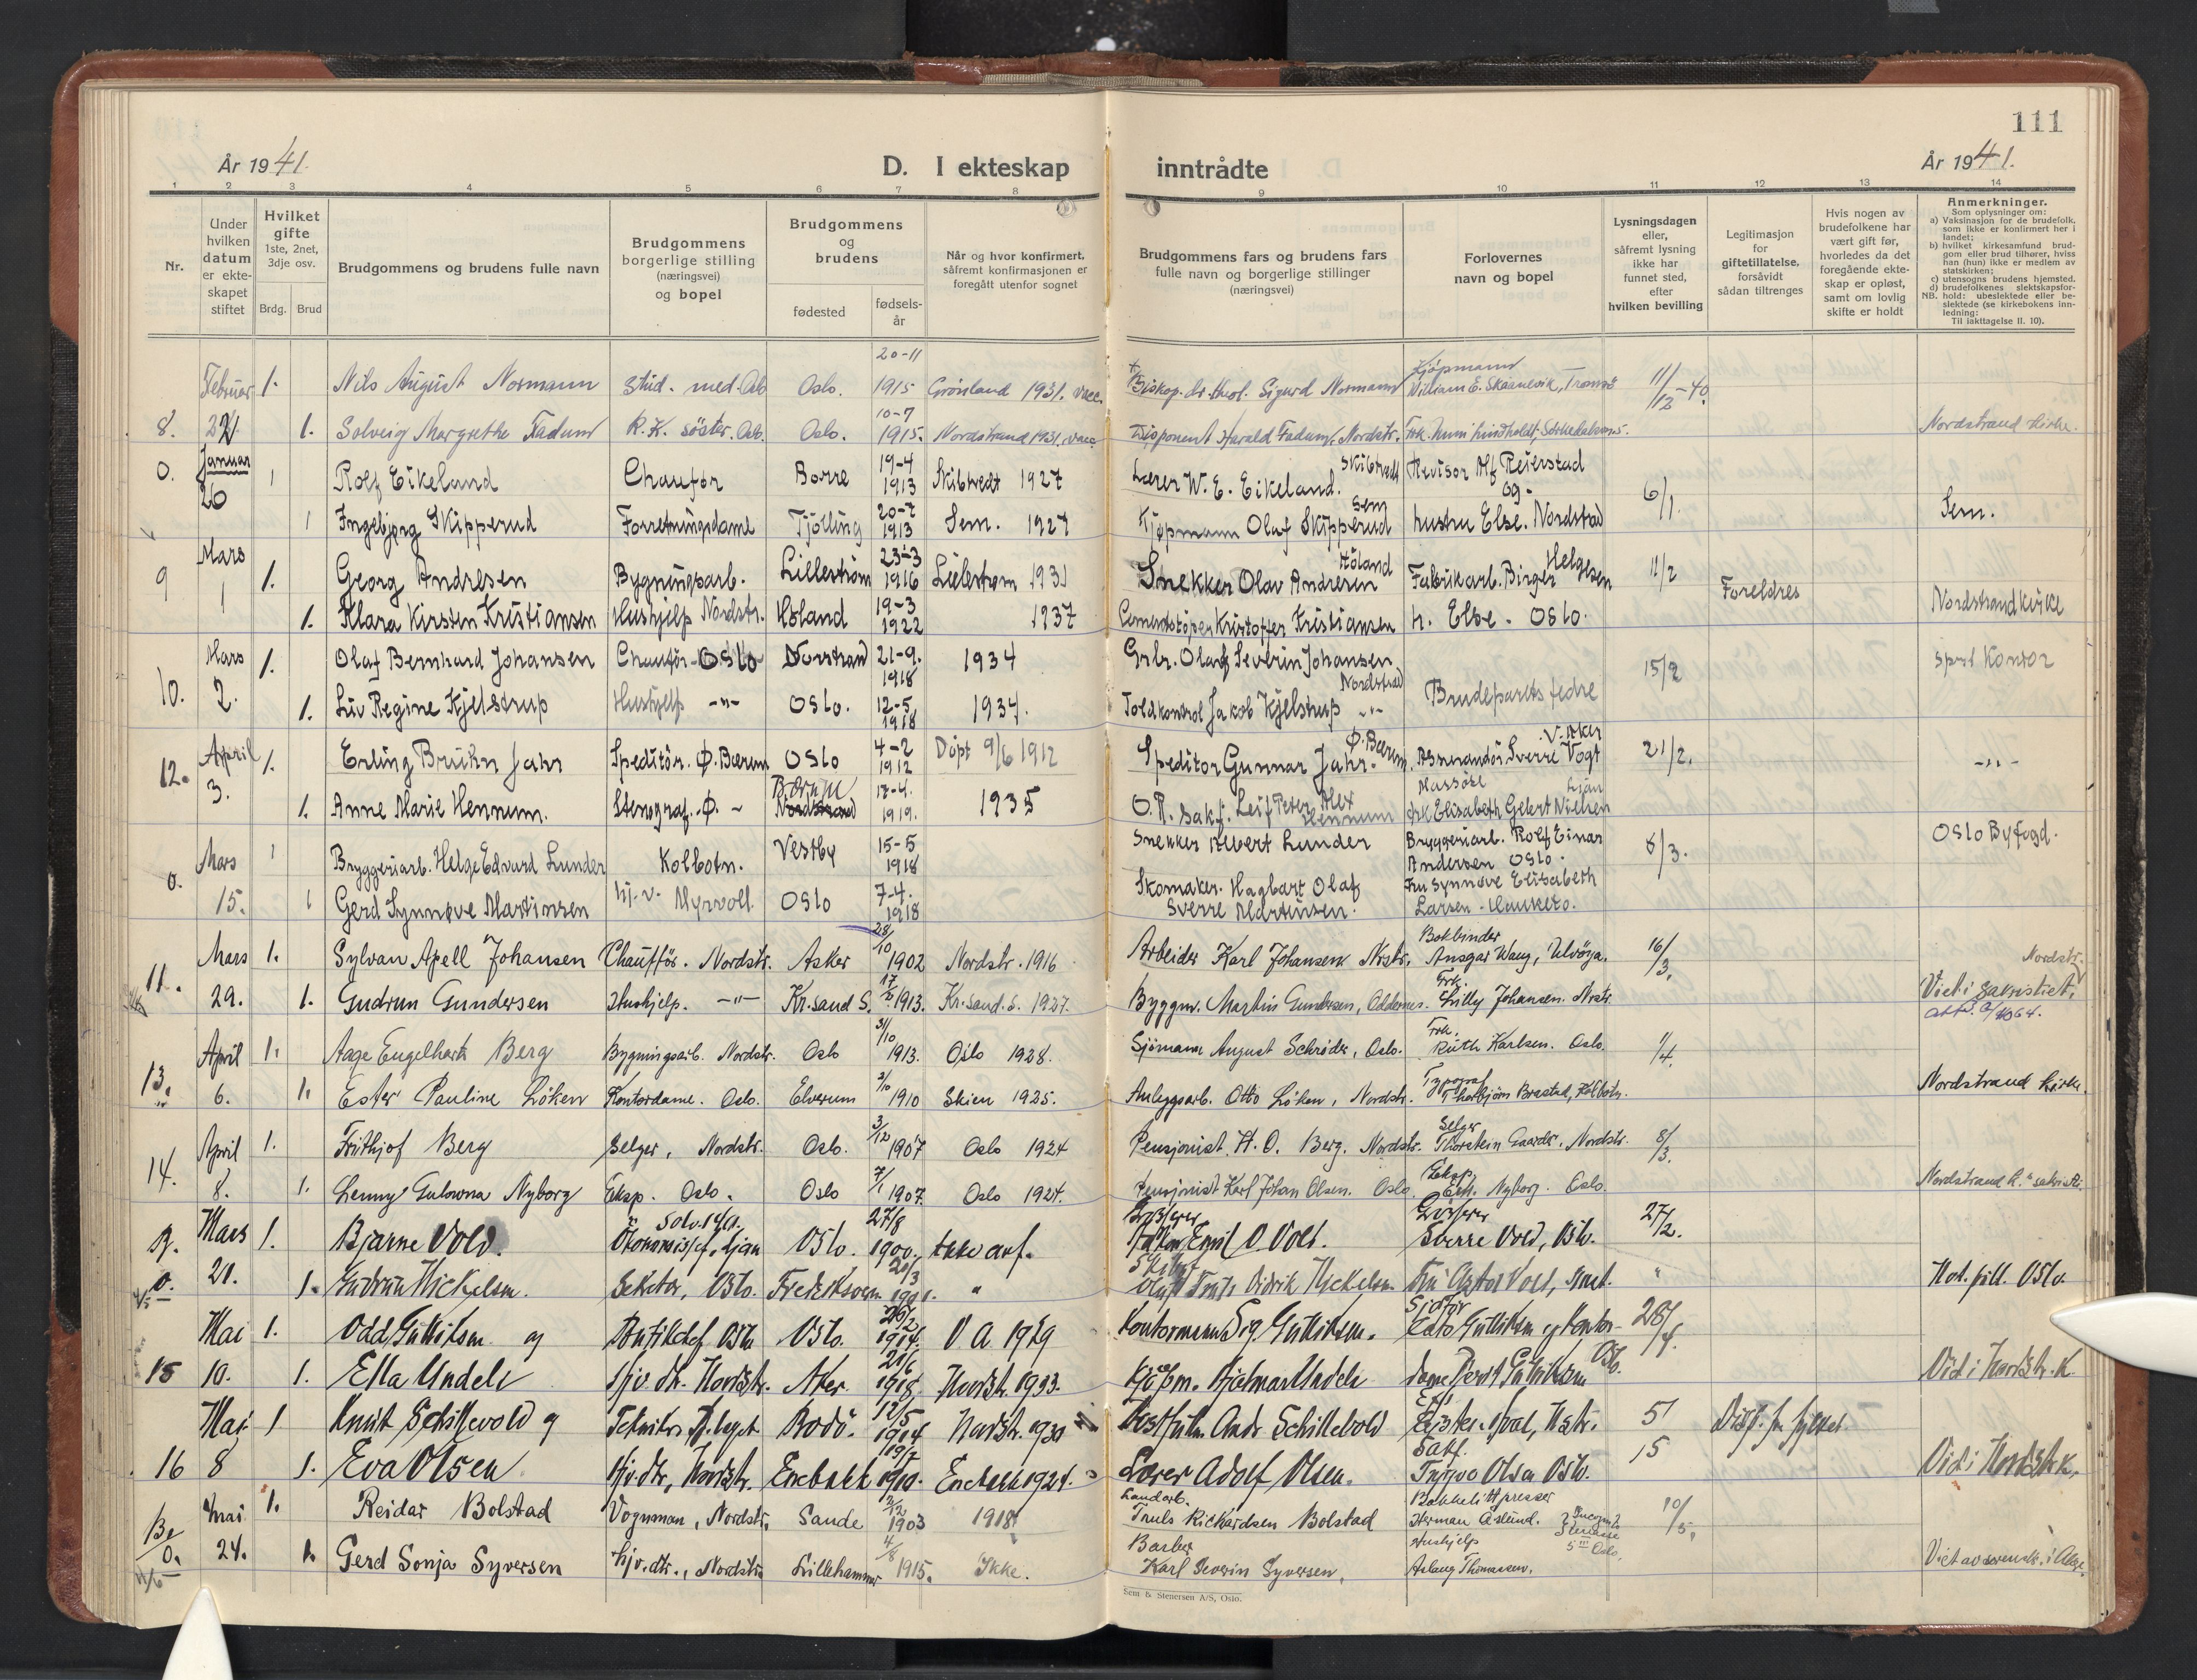 111
År 1941.
D. I ekteskap inntrådte
År 1941.
1 2 3 4 5 6 7 8 9 10 11 12 13 14
Nr.
Under hvilken datum er ekte-skapet stiftet
Hvilket gifte 1ste, 2net, 3dje osv.
Brdg. Brud
Brudgommens og brudens fulle navn
Brudgommens borgerlige stilling (næringsvei) og bopel
Brudgommens og brudens
fødested
fødsels-år
Når og hvor konfirmert, såfremt konfirmasjonen er foregått utenfor sognet
Brudgommens fars og brudens fars fulle navn og borgerlige stillinger (næringsvei)
Forlovernes navn og bopel
Lysningsdagen eller, såfremt lysning ikke har funnet sted, efter hvilken bevilling
Legitimasjon for giftetillatelse, forsåvidt sådan tiltrenges
Hvis nogen av brudefolkene har vært gift før, hvorledes da det foregående ekte-skap er opløst, samt om lovlig skifte er holdt
Anmerkninger.
Som oplysninger om:
a) Vaksinasjon for de brudefolk, som ikke er konfirmert her i landet;
b) hvilket kirkesamfund brud-gom eller brud tilhører, hviss han (hun) ikke er medlem av statskirken;
c) utensogns brudens hjemsted.
d) brudefolkenes slektskapsfor-hold: ubeslektede eller be-slektede (se kirkebokens inn-ledning:
NB.
Til iakttagelse II. 10).
Februar 1. Nils August Normann Stud. med. Oslo Oslo. 20-11 1915 Grønland 1931. vacc. Biskop. dr. theol. Sigurd Normann Kjøpmann William E. Skaanevik, Tromsø 11/12-40.
8. 1. Solveig Margrethe Fadum R.K. söster. Oslo. Oslo. 10-7 1915. Nordstrand 1931. vacc. Disponent Harald Fadum, Nordstr. Nordstrand kirke.
0. Januar 26 1 Rolf Eikeland Chauför Borre 19-4 1913 Skibtvedt 1927 Lærer W. E. Eikeland. Skibtvedt Revisor Alf Reierstad og 6/1.
1 Ingebjørg Skipperud Forretningsdame Tjølling 20-7 1913 Sem. 1927 Kjøpmann Olaf Skipperud Sem hustru Else. Nordstrad Sem.
9 Mars 1 1. Georg Andresen Bygningsarb. Lillestrøm 23-3 1916 Lillestrøm 1931 Snekker Olav Andresen Høland Fabrikarb. Birger Helgesen 11/2 Foreldres
1. Klara Kirsten Kristiansen Hushjelp Nordstr. Høland 19-3 1922 1937 Cementstøper Kristoffer Kristiansen h. Else - Oslo. Nordstrand kirke
10. Mars 2. 1. Olaf Bernhard Johansen Chauför - Oslo Norstrand 21-9. 1918 1934 Grbr. Olaf Severin Johansen Nordstrand 15/2
1. Liv Regine Kjelstrup Hushjelp -"- Oslo. 12-5 1918 1934. Toldkontrol Jakob Kjelstrup -"- Brudeparets fedre
12. April 3. 1. Erling Bruun Jahr Speditör. Ø. Bærum Oslo 4-2 1912 Döpt 9/6 1912 Speditor Gunnar Jahr. Ø. Bærum Sverre Vogt V. Aker 21/2. -"-
1. Anne Marie Hennum. Stenograf. Ø. - Bærum 17-4. 1919. 1935 O.R. sakf. Leif Peter Hennum Elisabeth Gelert Nielsen
Mars 1 Bryggeriarb. Helge Edvard Lunder Kolbotn. Vestby 15-5 1918 Snekker Albert Lunder Bryggeriarb. Rolf Einar Andersen Oslo. 8/3. Oslo Byfogd.
0. 15. 1 Gerd Synnøve Martinsen hj. v. Myrvoll Oslo 7-4. 1918 Skomaker. Hagbart Olaf Sverre Martinsen. Fru Synnøve Elisabeth Larsen - Hauketo.
11. Mars 1. Sylvan Apell Johansen Chauffør. Nordstr. Asker 28/10 1902 Nordstr. 1916 Arbeider Karl Johansen Nrstr. Bokbinder Ansgar Wang, Ulvöya. 16/3. Nordstr.
29. 1. Gudrun Gundersen Hushjelp. -"- Kr.sand S. 1913. Kr.sand. S. 1927. Byggm. Martin Gundersen, Frk. Lilly Johansen. Nrstr. Viet i sakristiet,
13. April 1. Aage Engelhart Berg Bygningsarb. Nordstr. Oslo 31/10 1913. Oslo 1928. Sjömann August Schrøder, Oslo. Frk. Ruth Karlsen. Oslo. 1/4.
6. 1. Ester Pauline Løken Kontordame. Oslo. Elverum 2/10 1910 Skien 1925. Anleggsarb. Otto Løken, Nordstr. Typograf Thorbjörn Brastad, Kolbotn. Nordstrand kirke.
14. April 1. Frithjof Berg Selger, Nordstr. Oslo. 3/12 1907 Oslo 1924 Pensjonist H. O. Berg. Nordstr. Selger Thorstein Gaarder, Nordstr. 8/3.
8. 1. Lenny Nyborg Eksp. Oslo. Oslo 7/1 1907. Oslo 1924. Pensjonist Karl Johan Olsen. Oslo. Eksp. Nyborg. Oslo.
Mars 1. Bjarne Vold. Ökonomisjef, Ljan Oslo. 27/8 1900. Ikke anf. Emil O. Vold. Sverre Vold, Oslo. 27/2.
0. 20. 1. Gudrun Mickelsen. Sekretær, Oslo. Fredriksværn " Didrik Mickelsen " Not. publ. Oslo
Mai 1. Odd Gulliksen og Butikchef Oslo Oslo. 1914. V. A. 1929 Kontormann Sig. Gulliksen. Gulliksen og kontor- 28/4.
15 10. 1. Ella Undeli Hjv. dtr. Nordstr. Aker 1918. Nordstr. 1933. Kjøpm. Hjalmar Undeli dame Gerd Gulliksen Oslo. Vid i Nordstr. K.
Mai 1 Knut Schillevold og Bodö. 12/5 1904 Nordstr. 1930 Andr Schillevold 5/
16 8 1. Eva Olsen. Hjv. dtr., Nordstr. Enebakk 1910. Enebakk 1924. Lærer Adolf Olsen. Sakf. Trygve Olsen Oslo. 15 Vid i Nordstr. k.
Mai 1. Reidar Bolstad Vognman, Nordstr. Sande 2/12 1903 1918 Landarb. Truls Rickardsen Bolstad Bakkelittpresser Herman Åslund. 10/5.
0. 24. 1. Gerd Sonja Syversen hjv.dtr., Nordstr. Lillehammer 4/8 1915. Ikke. Barber Karl Severin Syversen, Hushjelp Aslaug Thomassen.
Sem & Stenersen A/S, Oslo.